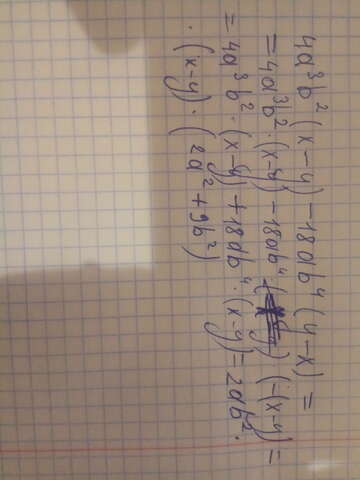 4a³b²(x-y)-18ab⁴(y-x)=
=4a³b²·(x-y)-18ab⁴·(-(x-y)=
=4a³b²·(x-y)+18ab⁴·(x-y)=2ab²·
·(x-y)·(2a²+9b²)